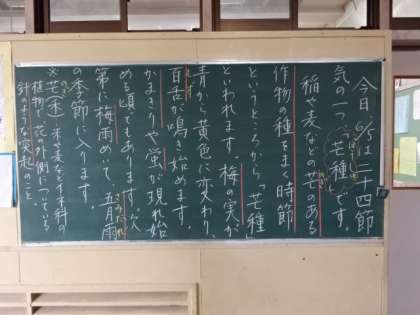 今日、6/5は二十四節
気の一つ、「芒種」です。
稲や麦などの芒のある
作物の種をまく時節
というところから「芒種」
といわれます。梅の実が
青から黄色に変わり、
百舌が鳴き始めます。
かまきりや蛍が現れ始
める頃でもあります。次
第に梅雨めいて、五月雨
の季節に入ります。
※芒(禾) 米や麦などイネ科の
植物で、花の外側についている
針のような突起のこと。